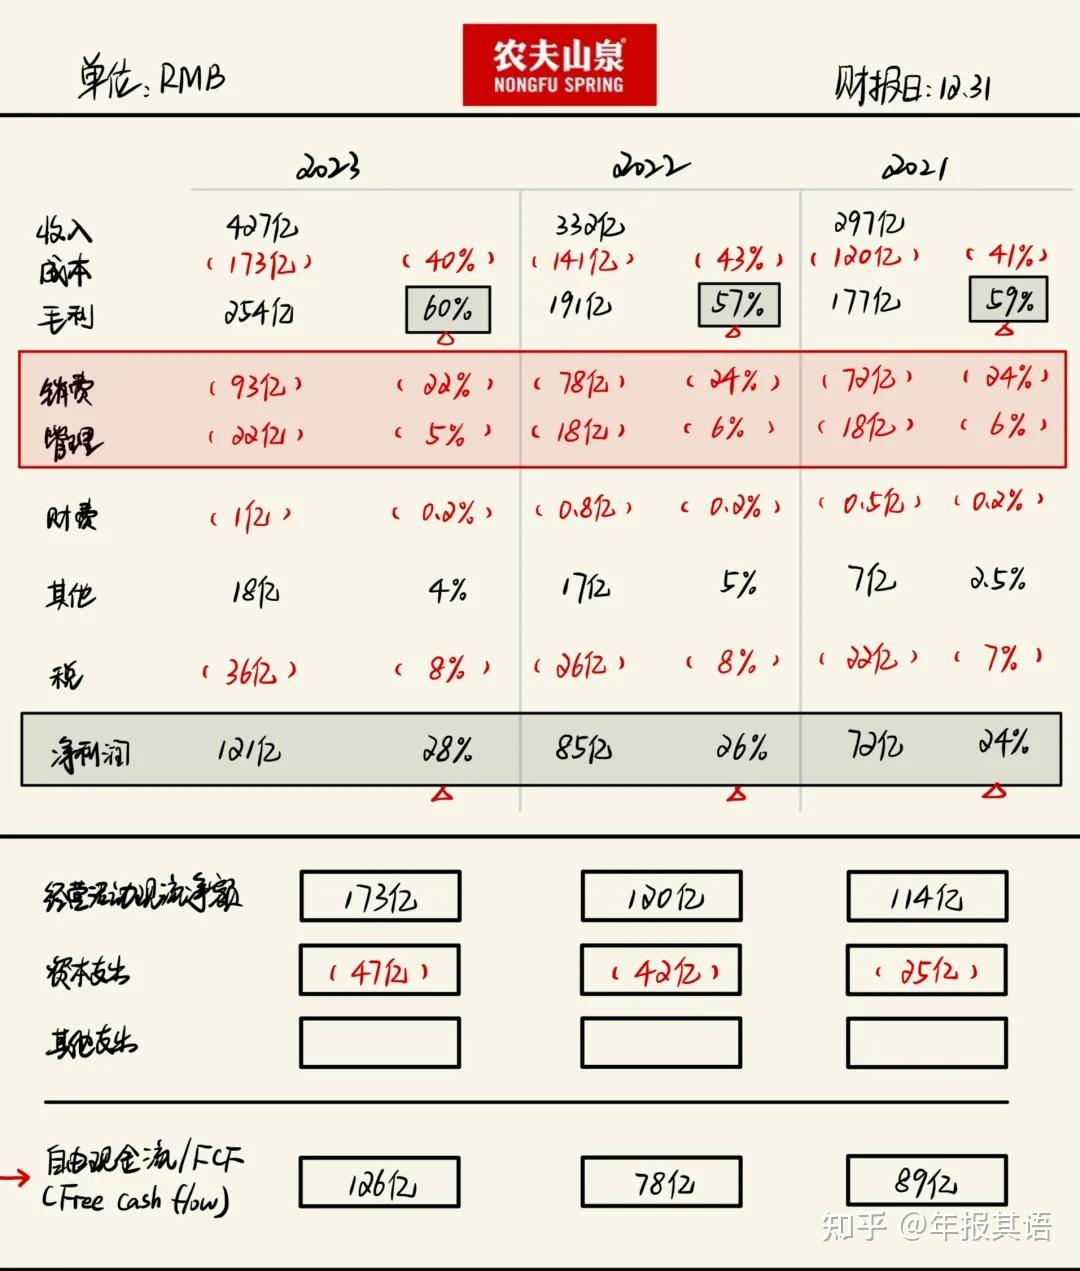 单位:RMB
农夫山泉
NONGFU SPRING
财报日:12.31
2023 2022 2021
收入 427亿 332亿 297亿
成本 (173亿) (40%) (141亿) (43%) (120亿) (41%)
毛利 254亿 60% 191亿 57% 177亿 59%
销费 (93亿) (22%) (78亿) (24%) (72亿) (24%)
管理 (22亿) (5%) (18亿) (6%) (18亿) (6%)
财费 (1亿) (0.2%) (0.8亿) (0.2%) (0.5亿) (0.2%)
其他 18亿 4% 17亿 5% 7亿 2.5%
税 (36亿) (8%) (26亿) (8%) (22亿) (7%)
净利润 121亿 28% 85亿 26% 72亿 24%
经营活动现流净额 173亿 120亿 114亿
资本支出 (47亿) (42亿) (25亿)
其他支出
自由现金流/FCF
(Free cash flow) 126亿 78亿 89亿
知乎 @年报其语